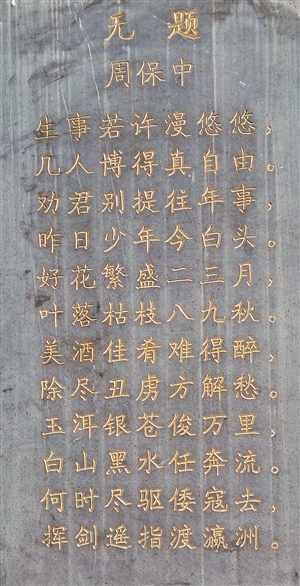 无题
周保中
生事若许漫悠悠，
几人博得真自由。
劝君别提往年事，
昨日少年今白头。
好花繁盛二三月，
叶落枯枝八九秋。
美酒佳肴难得醉，
除尽丑虏方解愁。
玉洱银苍俊万里，
白山黑水任奔流。
何时尽驱倭寇去，
挥剑遥指渡瀛洲。